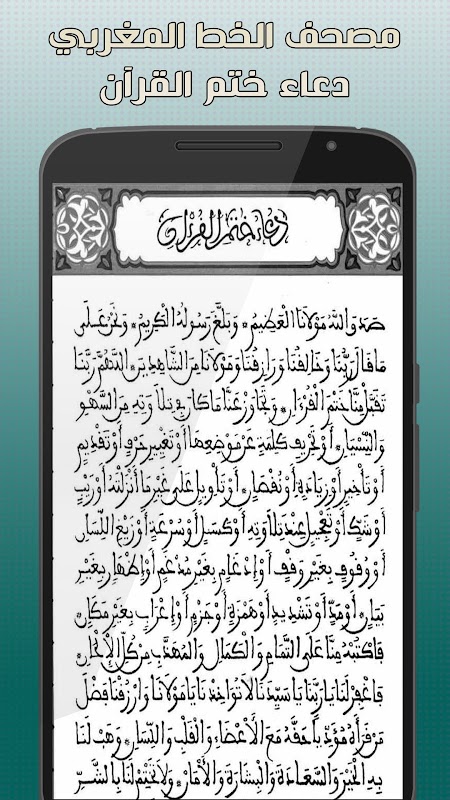 مصحف الخط المغربي
دعاء ختم القرآن
دعاء ختم القرءان
صدق الله مولانا العظيم وبلغ رسوله الكريم ونحن على
ما قال ربنا وخالفنا ورازفنا ومولانا من الشاهدين اللهم ربنا
تقبل منا ختم القرءان وتجاوز عنا ما كان في تلاوته من السهو
والنسيان أو تحريف كلمة عن موضعها أو تغيير حرف أو تقديم
أو تأخير أو زيادة أو نقصان أو تأويل على غير ما أنزلته أو ريب
أو شك أو تعجيل عند تلاوته أو كسل أو سرعة أو زيغ اللسان
أو وقوف بغير وقف أو إدغام بغير مدغم أو إظهار بغير
بيان أو مد أو تشديد أو همزة أو جزم أو إعراب بغير مكان
فاكتبه منا على التمام والكمال والمهذب من كل الألحان
فاغفر لنا يا ربنا يا سيدنا لا تواخذنا يا مولانا وارزقنا فضل
من قرأه مؤديا حقه مع الأعضاء والقلب واللسان وهب لنا
به الخير والسعادة والبشارة والأمان ولا تختم لنا بالشر